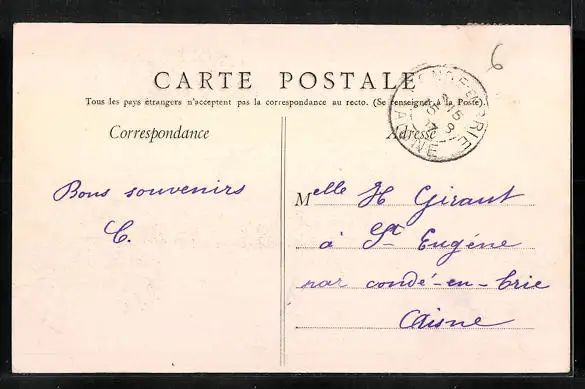 6
CARTE POSTALE
Tous les pays étrangers n'acceptent pas la correspondance au recto. (Se renseigner à la Poste)
Correspondance
Adresse
CONDÉ-EN-BRIE
AISNE
Bons souvenirs
C.
Melle H Giraut
à St Eugéne
par condé-en-brie
Aisne